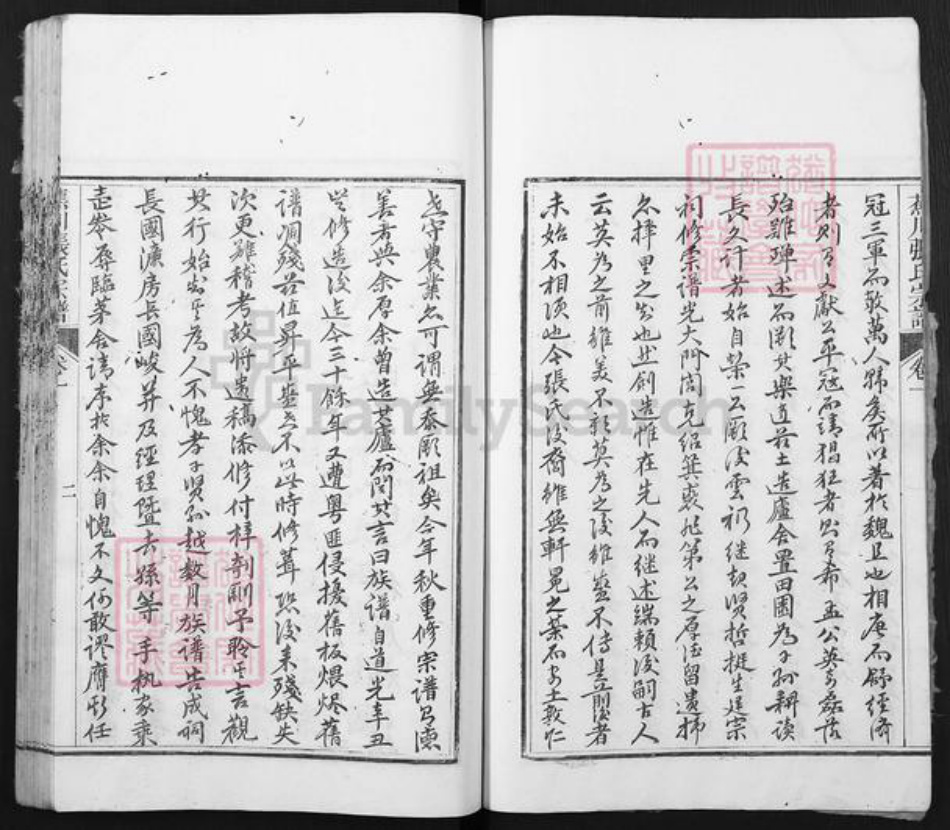 冠三軍而敵萬人歸矣所以著於魏且也相唐而歸經濟
者則有文獻公平冠而靖猖狂者則有希孟公英奇磊落
殆難殫述而厥其樂道茲土造廬舍置田園為子孫耕讀
長久計者始自榮一公厥後雲礽繼起賢哲挺生建宗
祠修宗譜光大門閭克紹箕裘廸第公之厚德留遺抑
亦擇里之善也然創造惟在先人而繼述端賴後嗣古人
云莫為之前雖美不彰莫為之後雖盛不傳是前後者
未始不相須也今張氏後裔雖無軒冕之榮而安土敦仁
世守農業亦可謂無忝厥祖矣今年秋重修宗譜有憲
善者與余厚余曾造其廬而問其言曰族譜自道光辛丑
歲修造後迄今三十餘年又遭粵匪侵擾舊板煨燼舊
譜凋殘茲值昇平盛世不以此時修葺恐後來殘缺失
次更難稽考故將遺稿添修付梓剞劂予聆其言觀
其行始知其為人不愧孝子賢孫越數月族譜告成祠
長國濂房長國峻并及經理暨去孫等手執家乘
走參辱臨茅舍請序於余余自愧不文何敢謬膺斯任
蕉川張氏宗譜
卷一
二
FamilySearch